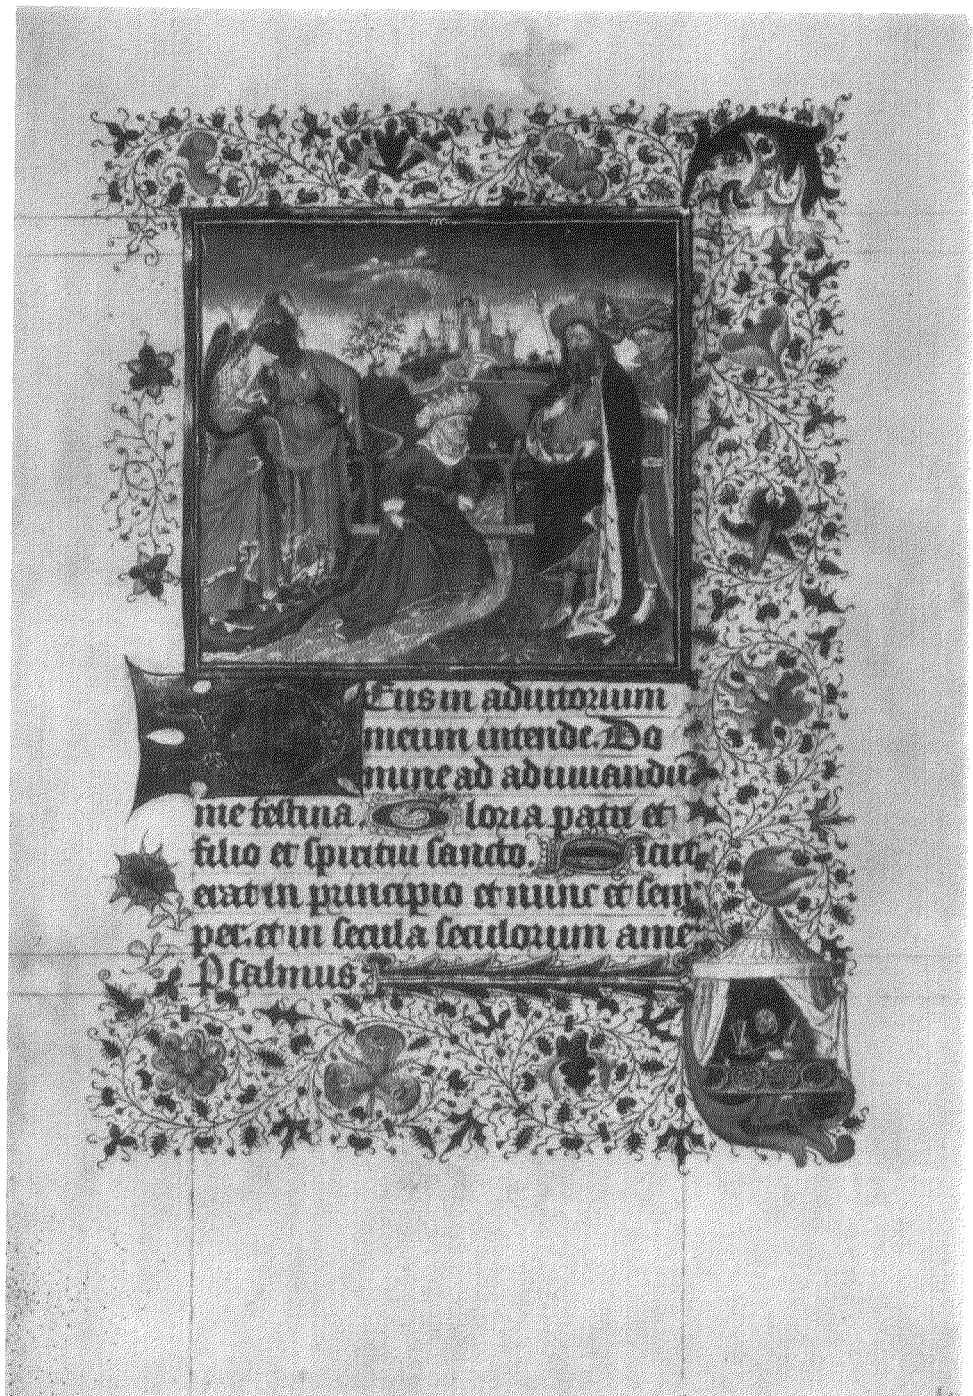 Deus in adiutorium
meum intende. Do
mine ad adiuuandu
me festina. Gloria patri et
filio et spiritui sancto. Sicut
erat in principio et nunc et sem
per. et in secula seculorum ame
Psalmus